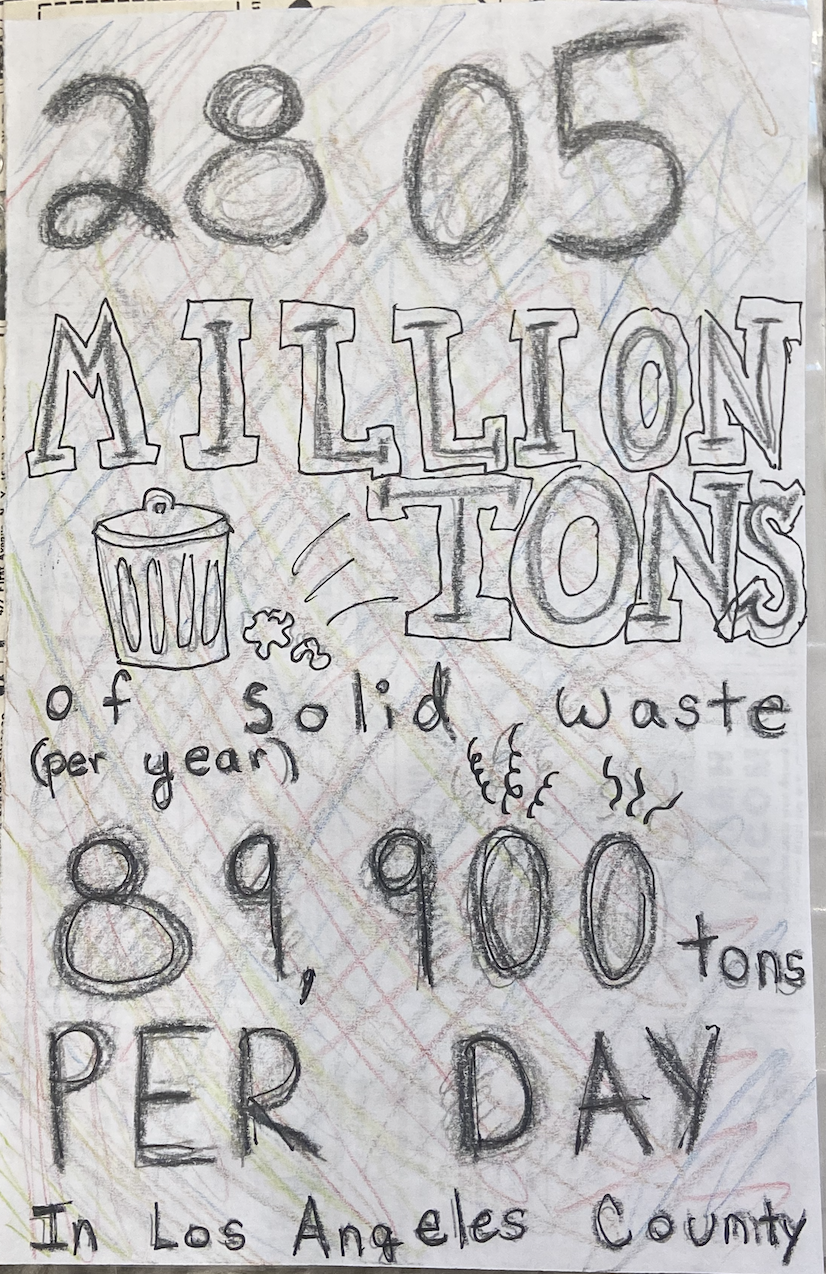 28.05
MILLION
TONS
of Solid waste
(per year)
89,900 tons
PER DAY
In Los Angeles County